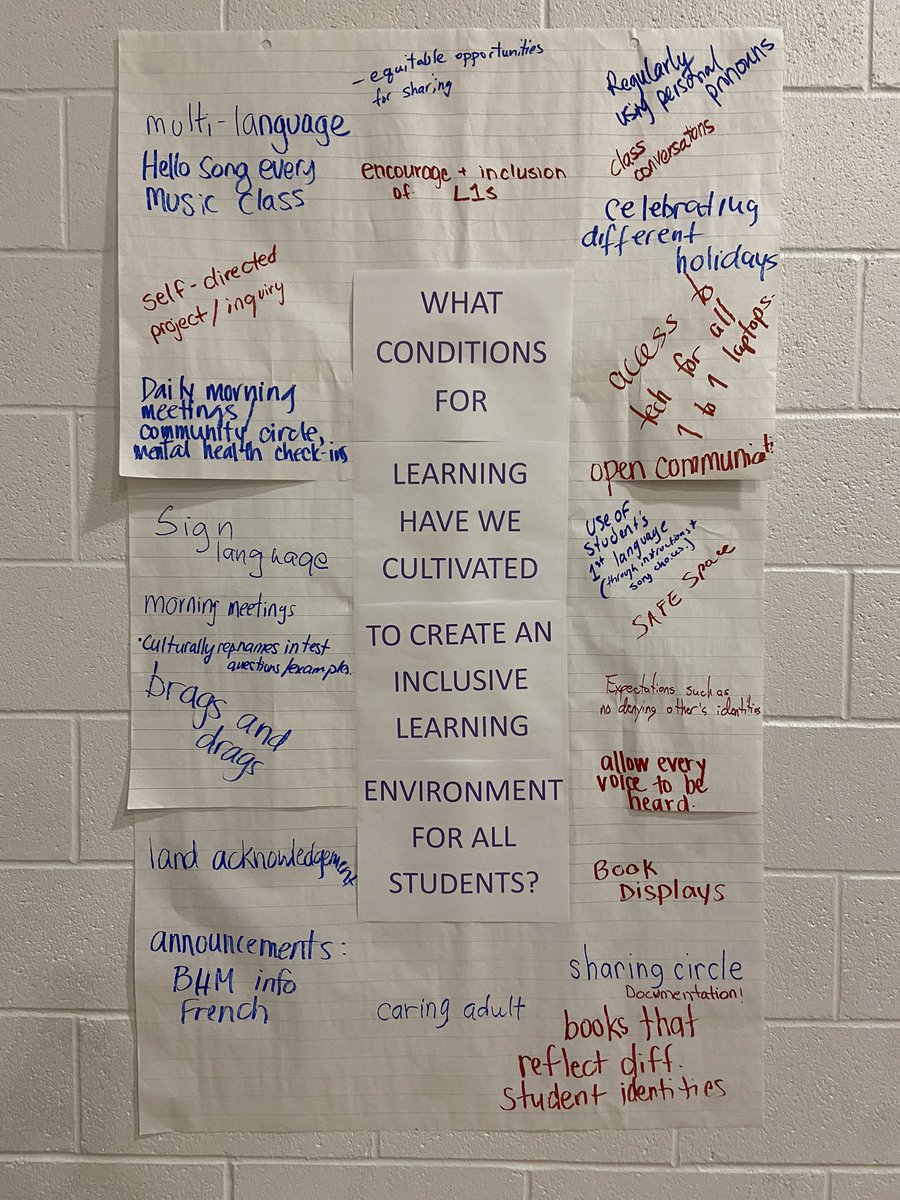 - equitable opportunities
for sharing
Regularly
using personal
pronouns
multi-language
Hello Song every
Music class
encourage + inclusion
of L1s
class
conversations
celebrating
different
holidays
self-directed
project/inquiry
access to
tech for all
1 to 1 laptops.
Daily morning
meetings/
community circle,
mental health check-ins
open communicati
Sign
language
use of
student's
1st language
(through instructions +
song choices)
SAFE Space
morning meetings
•Culturally rep names in test
questions/examples.
brags and
drags
Expectations such as
no denying other's identities
allow every
voice to be
heard.
WHAT
CONDITIONS
FOR
LEARNING
HAVE WE
CULTIVATED
TO CREATE AN
INCLUSIVE
LEARNING
ENVIRONMENT
FOR ALL
STUDENTS?
land acknowledgement
Book
Displays
announcements:
BHM info
French
caring adult
sharing circle
Documentation!
books that
reflect diff.
student identities